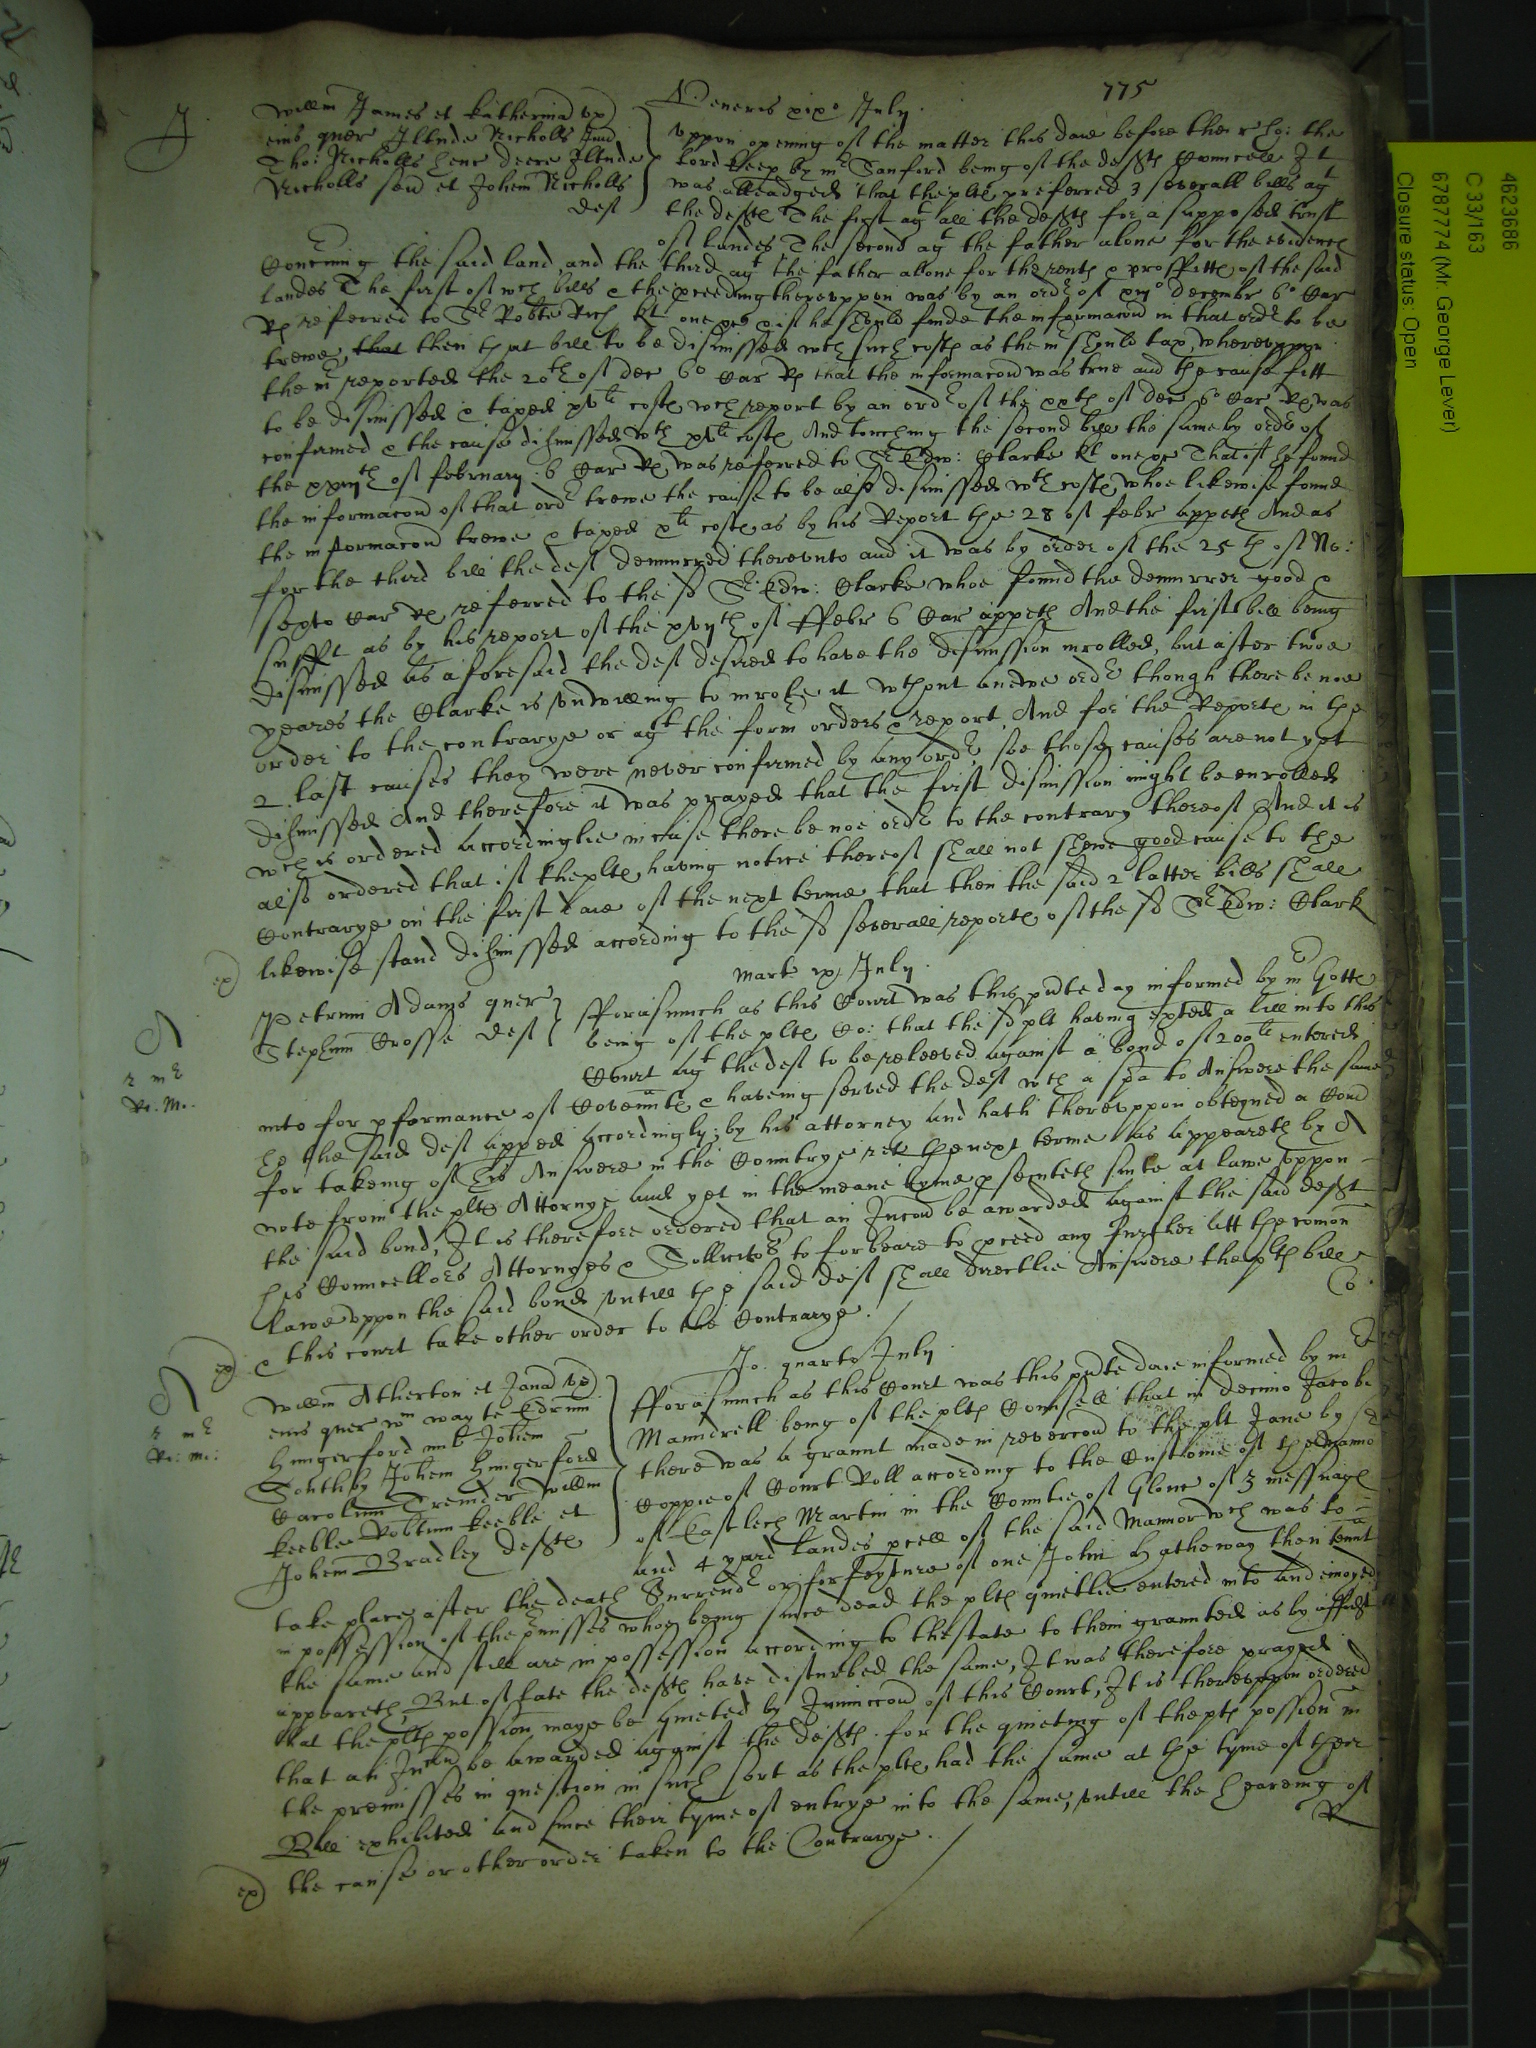 775
J
Willm James et Katherina ux
eius quer Iltude Nicholls Iuid
Tho: Nicholls Iltude
Nicholls sen et Johem Nicholls
def
Veneris xixo July
Vppon opening of the matter this daie before the r ho: the
Lord Keep by mr Sanford being of the defts Councell It
was alleadged that the plts preferred 3 severall bills agt
the defts The first agt all the defts for a supposed trust
of landes The second agt the father alone for the evidence
Concerning the said land, and the third agt the father alone for the rents & proffitts of the said
landes The first of wch bills & the pceeding therevppon was by an ordr of December 6o Car
Rs referred to Sr Robte Rich kt one & if he should finde the informacon in that ordr to be
trewe, that then that bill to be dismissed wth such costs as the mr should tax, wherevppon
the mr reported the 20th of dec 6o Car Rs that the informacon was true and the cause fitt
to be dismissed & taxed costs wch report by an ordr of the of dec 6o Car Rs was
confirmed & the cause dismissed wth costs And touching the second bill the same by order of
the of february 6 Car Rs was referred to Sr Edw: Clarke kt one That if he found
the informacon of that ordr trewe the cause to be also dismissed wth costs whoe likewise found
the informacon trewe & taxed costs as by his Report the 28 of febr appeth And as
for the third bill the deft demurred therevnto and it was by order of the 25th of No:
sexto Car Rs referred to the sd Sr Edw: Clarke whoe found the demurrer good &
suffit as by his report of the of ffebr 6 Car appeth And the first bill being
dismissed as aforesaid the deft desired to have the dismission inrolled, but after twoe
yeares the Clarke is vnwilling to inrolle it wthout a newe ordr though there be noe
order to the contrarye or agt the form orders & report, And for the Reports in the
2 last causes they were never confirmed by any ordr, soe those causes are not yet
dismissed And therefore it was prayed that the first dismission might be enrolled
wch is ordered accordinglie in case there be noe ordr to the contrary thereof And it is
also ordered that if the plts having notice thereof shall not shewe good cause to the
Contrarye on the first daie of the next terme that then the said 2 latter bills shall
likewise stand dismissed according to the sd severall reports of the sd Sr Edw: Clark
ex)
Marts July
r mr
Ri: Mo:
Petrum Adams quer
Stephum Crosse deft
fforasmuch as this Court was this pnte day informed by mr Gotte
being of the plts Co: that the sd plt having expted a bill into this
Court agt the deft to be releeved against a bond of 200li entered
into for pformance of Covennts & haveing served the deft wth a spa to Answere the same
he the said deft apped accordingly, by his attorney and hath therevppon obteyned a Com
for takeing of his Answere in the Countrye ret the next terme as appeareth by A
note from the plts Attornye and yet in the meane tyme psecuteth suite at lawe vppon
the said bond, It is therefore ordered that an Incon be awarded against the said deft
his Councellors Attornyes & Sollicitors to forbeare to pceed any further att the comon
lawe vppon the said bond vntill the said deft shall directlie Answere the plts bill
& this court take other order to the Contrarye.
Co
ex)
Jo. quarto July
r mr
Ri: mi:
Willm Atherton et Jana ux
eius quer wm wayte Edrum
Hungerford mil Johem
Southby Johem Hungerford
Carolum Trender willm
Keeble Robtum Keeble et
Johem Bradley defts
fforasmuch as this Court was this pnte daie informed by mr
Maundrell being of the plts Counsell that in decimo Jacobi
there was a graunt made in revercon to the plt Jane by
Coppie of Court Roll according to the Custome of the manno
of Eastlech Martin in the Countie of Glouc of 3 messuags
and 4 yard landes pcell of the said Mannor wch was to
take place after the death Surrendr or forfeyture of one John Hatheway then tennt
in possession of the pmisses whoe being since dead the plts quietlie entered into and enioyed
the same and still are in possession according to the state to them graunted as by affidt
appeareth, But of late the defts have disturbed the same, It was therefore prayed
that the plts possion maye be quieted by Iniunccon of this Court, It is therevppon ordered
that an Incon be awarded against the defts for the quieting of the plts possion in
the premisses in question in such sort as the plts had the same at the tyme of their
Bill exhibited and since their tyme of entrye into the same, vntill the heareing of
the cause or other order taken to the Contrarye.
R
ex)
4623686
C 33/163
6787774 (Mr. George Lever)
Closure status: Open